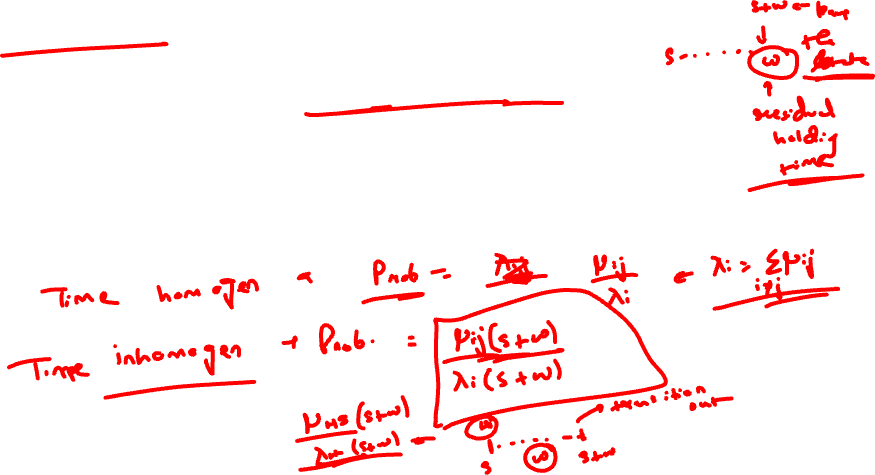 s+w
s ...... w
residual
holding
time
Time homogen Prob = μij / λi λi = Σ μij
i≠j
Time inhomogen → Prob. = μij(s+w) / λi(s+w)
μHS(s+w) / (s+w) = w → transition
out
s ...... s+w
w